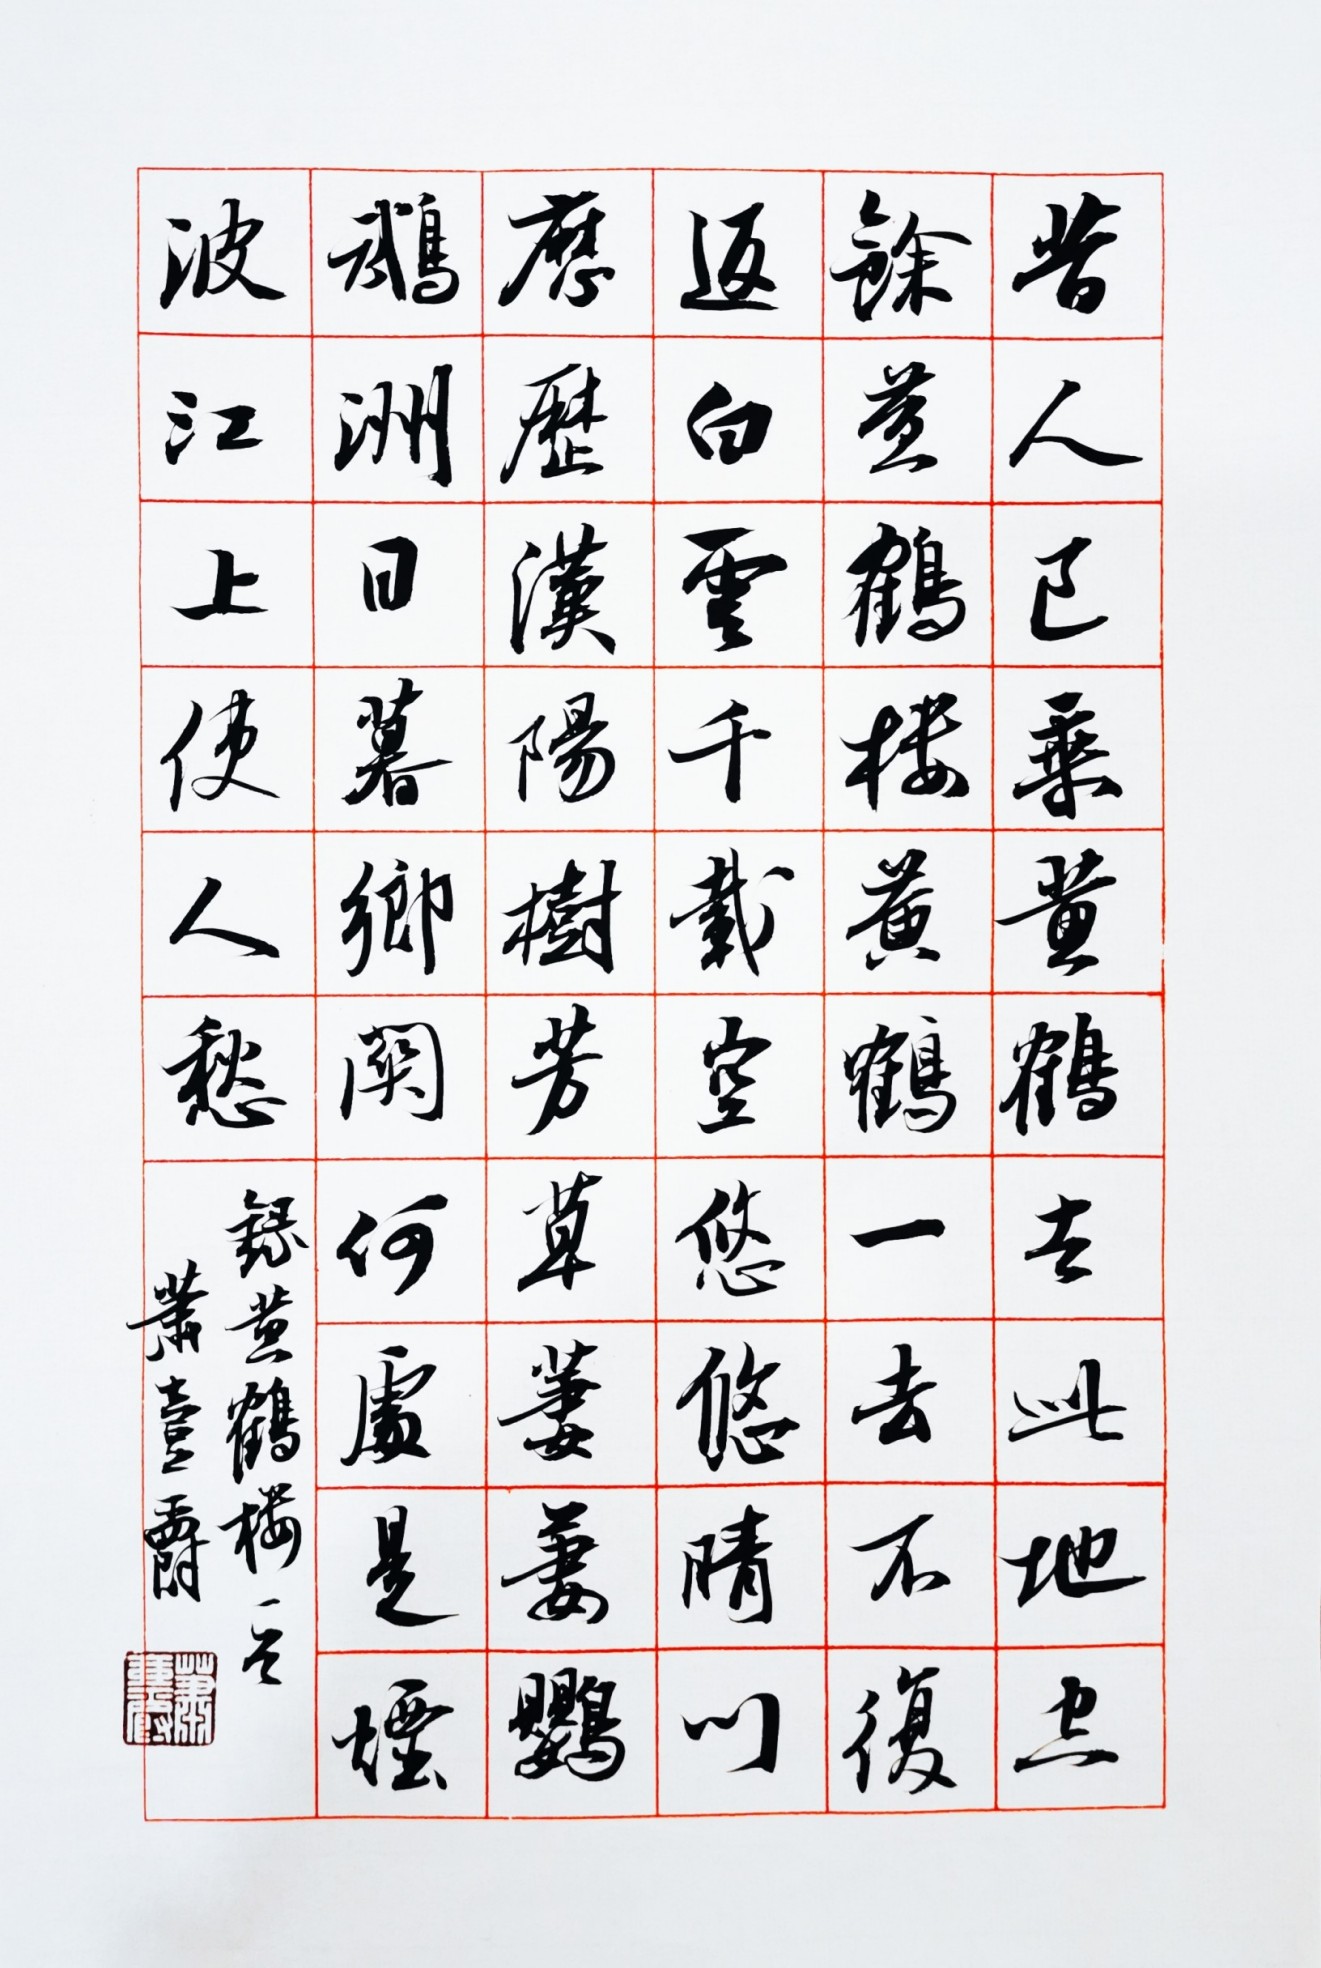 昔人已乘黃鶴去此地空
餘黃鶴樓黃鶴一去不復
返白雲千載空悠悠晴川
歷歷漢陽樹芳草萋萋鸚
鵡洲日暮鄉關何處是煙
波江上使人愁
錄黃鶴樓一首
蕭壹爵